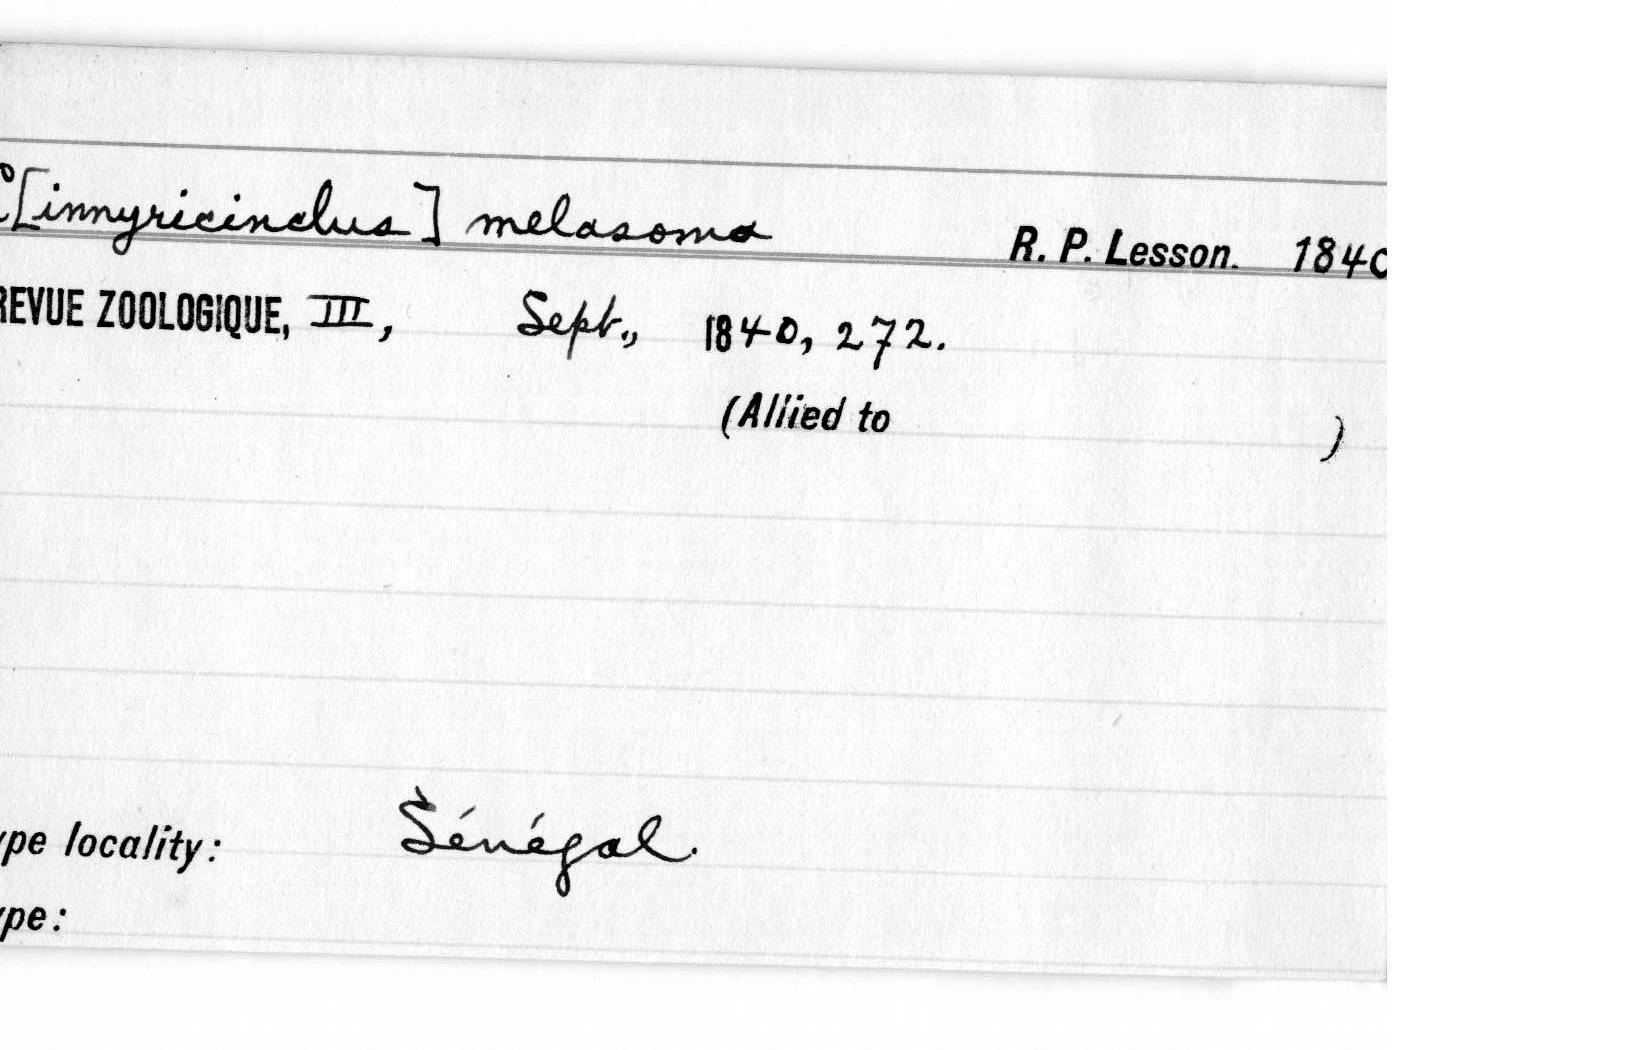 C[innyricinclus] melasoma R. P. Lesson. 1840
REVUE ZOOLOGIQUE, III, Sept., 1840, 272.
(Allied to )
ype locality: Sénégal.
ype: